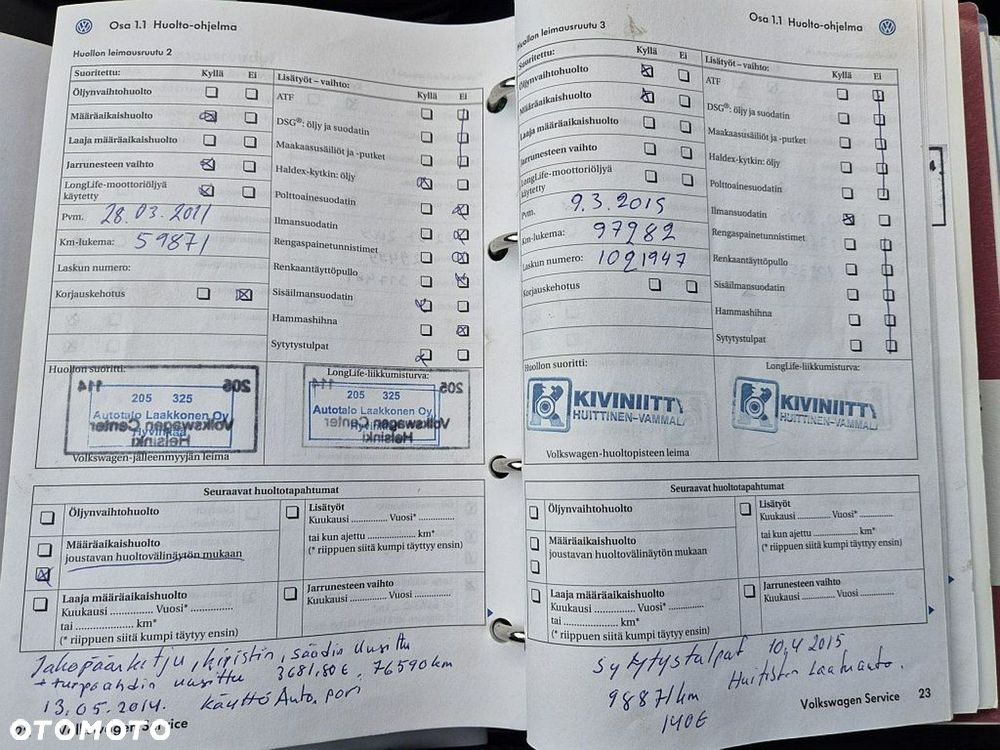 Osa 1.1 Huolto-ohjelma
Huollon leimausruutu 2
Suoritettu: Kyllä Ei
Öljynvaihtohuolto
Määräaikaishuolto
Laaja määräaikaishuolto
Jarrunesteen vaihto
LongLife-moottoriöljyä
käytetty
Pvm. 28.03.2011
Km-lukema: 59871
Laskun numero:
Korjauskehotus
Lisätyöt – vaihto: Kyllä Ei
ATF
DSG®: öljy ja suodatin
Maakaasusäiliöt ja -putket
Haldex-kytkin: öljy
Polttoainesuodatin
Ilmansuodatin
Rengaspainetunnistimet
Renkaantäyttöpullo
Sisäilmansuodatin
Hammashihna
Sytytystulpat
Huollon suoritti:
205 325
Autotalo Laakkonen Oy
206 114
Volkswagen Center
Helsinki
Volkswagen-jälleenmyyjän leima
LongLife-liikkumisturva:
205 325
Autotalo Laakkonen Oy
206 114
Volkswagen Center
Helsinki
Seuraavat huoltotapahtumat
Öljynvaihtohuolto
Määräaikaishuolto
joustavan huoltovälinäytön mukaan
Laaja määräaikaishuolto
Kuukausi ............ Vuosi* ............
tai ............ km*
(* riippuen siitä kumpi täytyy ensin)
Lisätyöt
Kuukausi ............ Vuosi* ............
tai kun ajettu ............ km*
(* riippuen siitä kumpi täytyy ensin)
Jarrunesteen vaihto
Kuukausi ............ Vuosi ............
Jakopäänketju, kiristin, säädin uusittu
+ turpoahdin uusittu 3681,80€, 76590km
13.05.2014. Käyttö Auto, pori
Volkswagen Service
Osa 1.1 Huolto-ohjelma
Huollon leimausruutu 3
Suoritettu: Kyllä Ei
Öljynvaihtohuolto
Määräaikaishuolto
Laaja määräaikaishuolto
Jarrunesteen vaihto
LongLife-moottoriöljyä
käytetty
Pvm. 9.3.2015
Km-lukema: 97282
Laskun numero: 1021947
Korjauskehotus
Lisätyöt – vaihto: Kyllä Ei
ATF
DSG®: öljy ja suodatin
Maakaasusäiliöt ja -putket
Haldex-kytkin: öljy
Polttoainesuodatin
Ilmansuodatin
Rengaspainetunnistimet
Renkaantäyttöpullo
Sisäilmansuodatin
Hammashihna
Sytytystulpat
Huollon suoritti:
KIVINIITT
HUITTINEN-VAMMAL
Volkswagen-huoltopisteen leima
LongLife-liikkumisturva:
KIVINIITT
HUITTINEN-VAMMAL
Seuraavat huoltotapahtumat
Öljynvaihtohuolto
Määräaikaishuolto
joustavan huoltovälinäytön mukaan
Laaja määräaikaishuolto
Kuukausi ............ Vuosi* ............
tai ............ km*
(* riippuen siitä kumpi täytyy ensin)
Lisätyöt
Kuukausi ............ Vuosi* ............
tai kun ajettu ............ km*
(* riippuen siitä kumpi täytyy ensin)
Jarrunesteen vaihto
Kuukausi ............ Vuosi ............
Sytytystulpat 10.4 2015
98871km Huittisten Laatuauto.
140€
Volkswagen Service 23
OTOMOTO